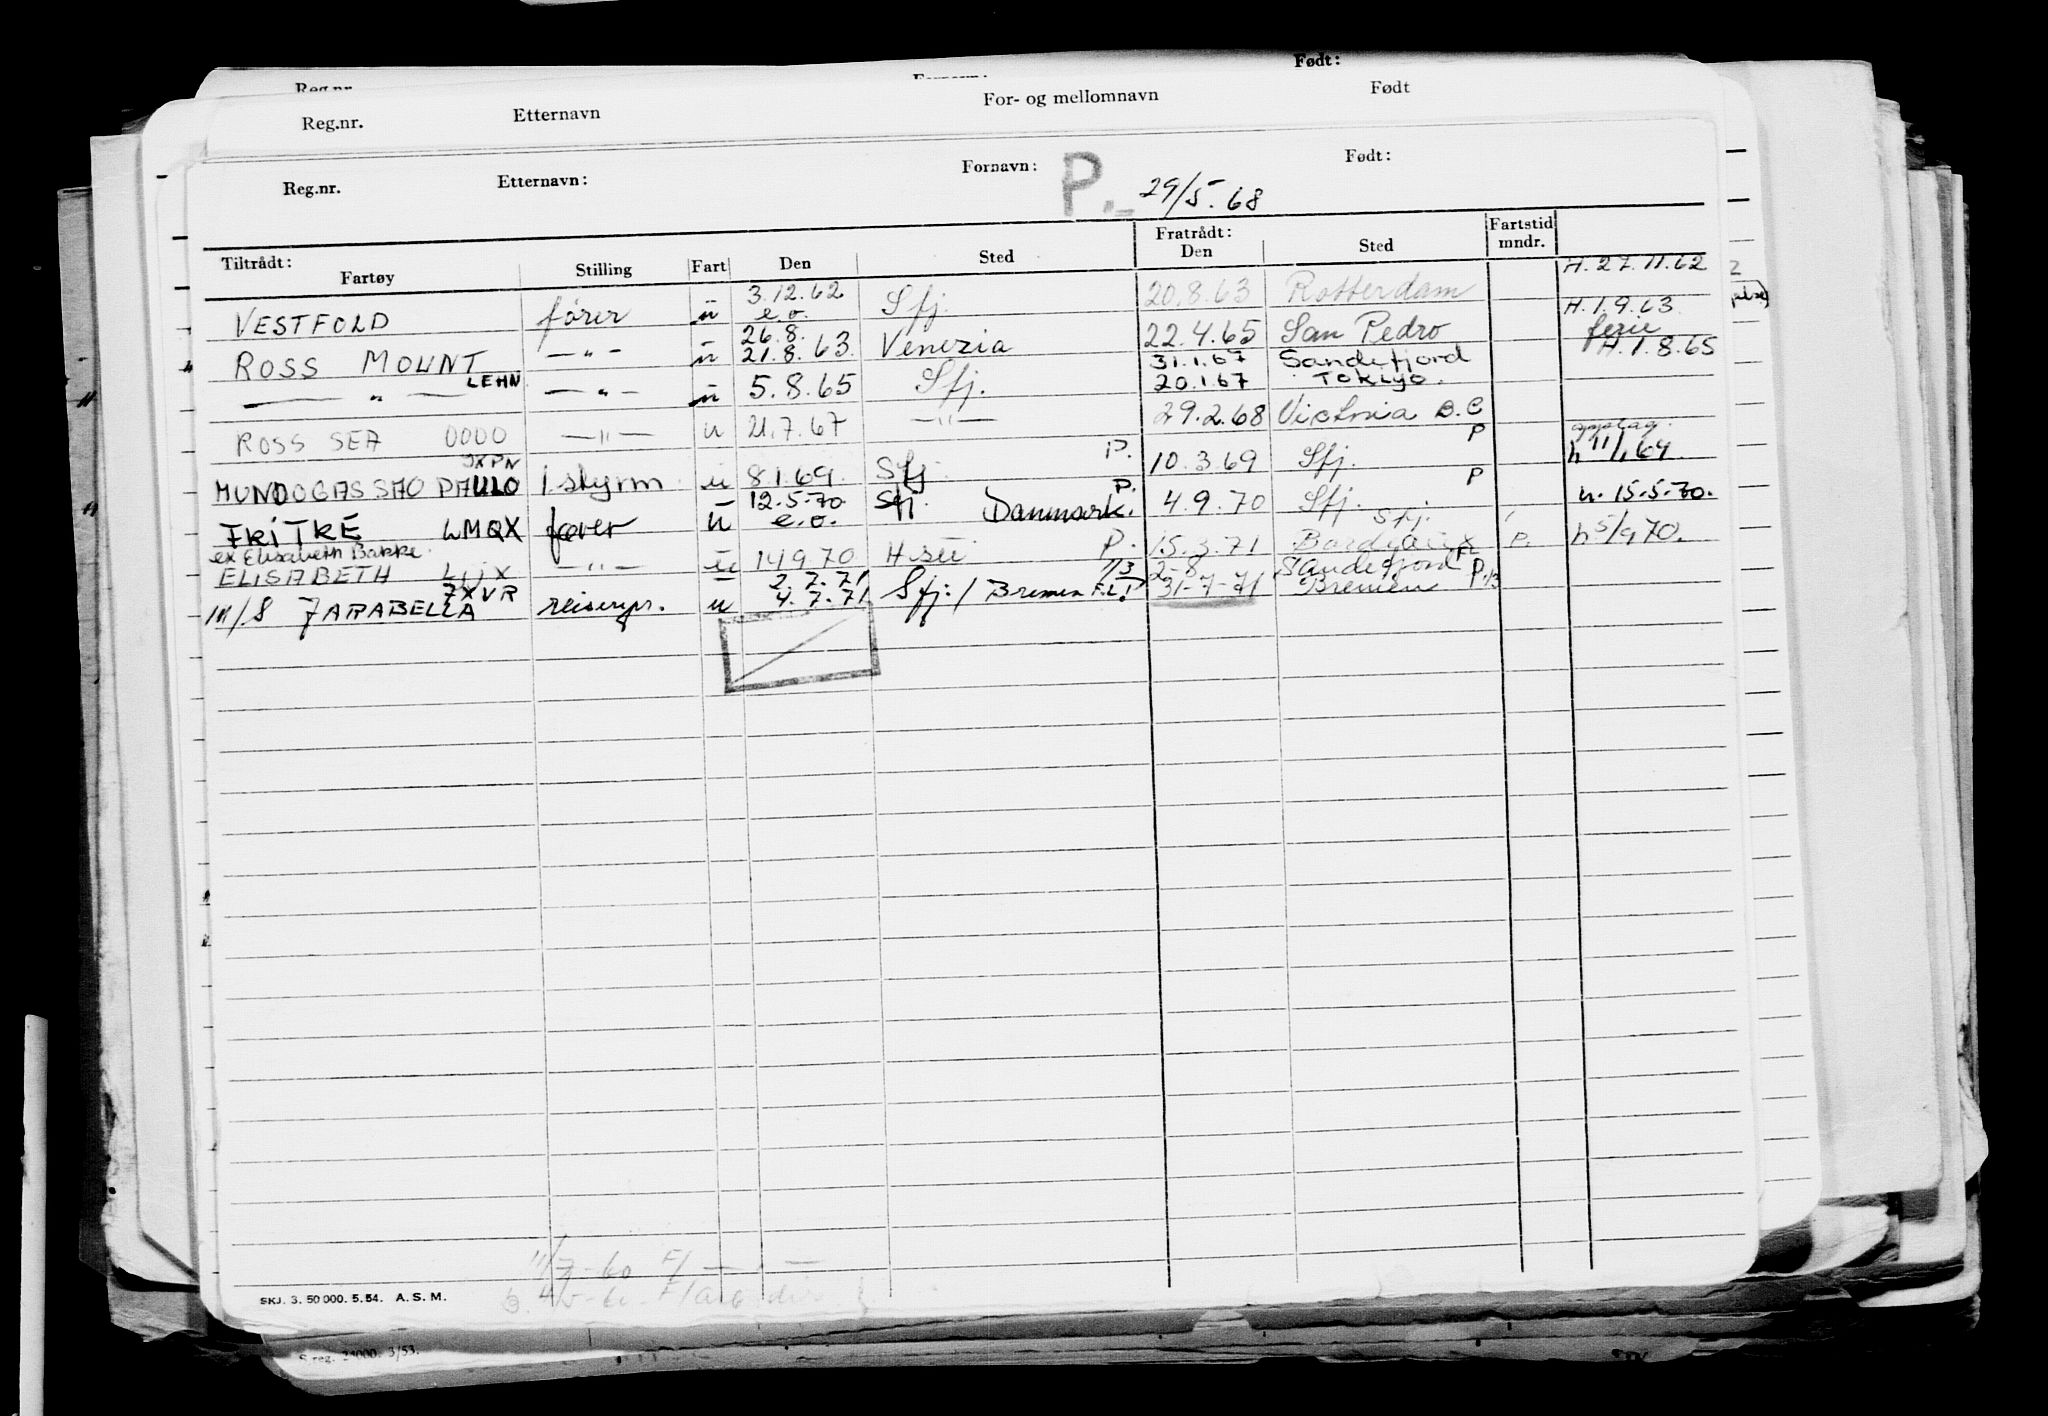 Reg.nr. Fornavn: Født:
Reg.nr. Etternavn For- og mellomnavn Født
Reg.nr. Etternavn: Fornavn: Født:
P.- 29/5.68
Tiltrådt: Fartøy Stilling Fart Den Sted Fratrådt: Den Sted Fartstid mndr.
H. 27.11.62
VESTFOLD fører u 3.12.62 e.o. Sfj. 20.8.63 Rotterdam H.1.9.63
ROSS MOUNT —"— u 26.8. 21.8.63 Venezia 22.4.65 San Pedro ferie H.1.8.65
—"— LEHN —"— u 5.8.65 Sfj. 31.1.67 Sandefjord 20.1.67 Tokiyo.
ROSS SEA OOOO —"— u 21.7.67 —"— 29.2.68 Victoria B.C opplag.
MUNDOGAS SAO PAULO JXPN 1 styrm u 8.1.69. Sfj P. 10.3.69 Sfj. P h 11/1.69.
FRITRE LMQX fører u 12.5.70 e.o. Sfj Danmark. P. 4.9.70 Sfj. P h. 15.5.70.
ex Elisabeth Bakke.
ELISABETH —"— u 14.9.70 P. 15.3.71 Sfj. P. h 5/9 70.
M/S JARABELLA JXVR reiserepr. u 2.7.71 4.7.71 Sfj:/Bremen 2-8 31-7-71 Sandefjord Bremen P.
11/7-60
SKJ. 3. 50 000. 5.54. A.S.M.
S reg. 3/53.